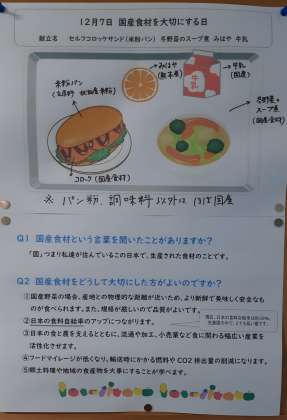 12月7日 国産食材を大切にする日
献立名 セルフコロッケサンド(米粉パン) 冬野菜のスープ煮 みはや 牛乳
米粉パン
みはや
(熊本産)
牛乳
(国産)
冬野菜の
スープ煮
(国産食材)
コロッケ(国産食材)
※ パン粉、調味料以外は ほぼ国産
Q1 国産食材という言葉を聞いたことがありますか?
「国」つまり私達が住んでいるこの日本で、生産された食材のことです。
Q2 国産食材をどうして大切にした方がよいのですか?
①国産野菜の場合、産地との物理的な距離が近いため、より新鮮で美味しく安全なも
のが食べられます。また、規格が厳しいので品質がよいです。
②日本の食料自給率のアップにつながります。
③日本の食と農を支えるとともに、流通や加工、小売業など食に関わる幅広い産業を
活性化させます。
④フードマイレージが低くなり、輸送時にかかる燃料やCO2排出量の削減になります。
⑤郷土料理や地域の食産物を大事にすることが学べます。